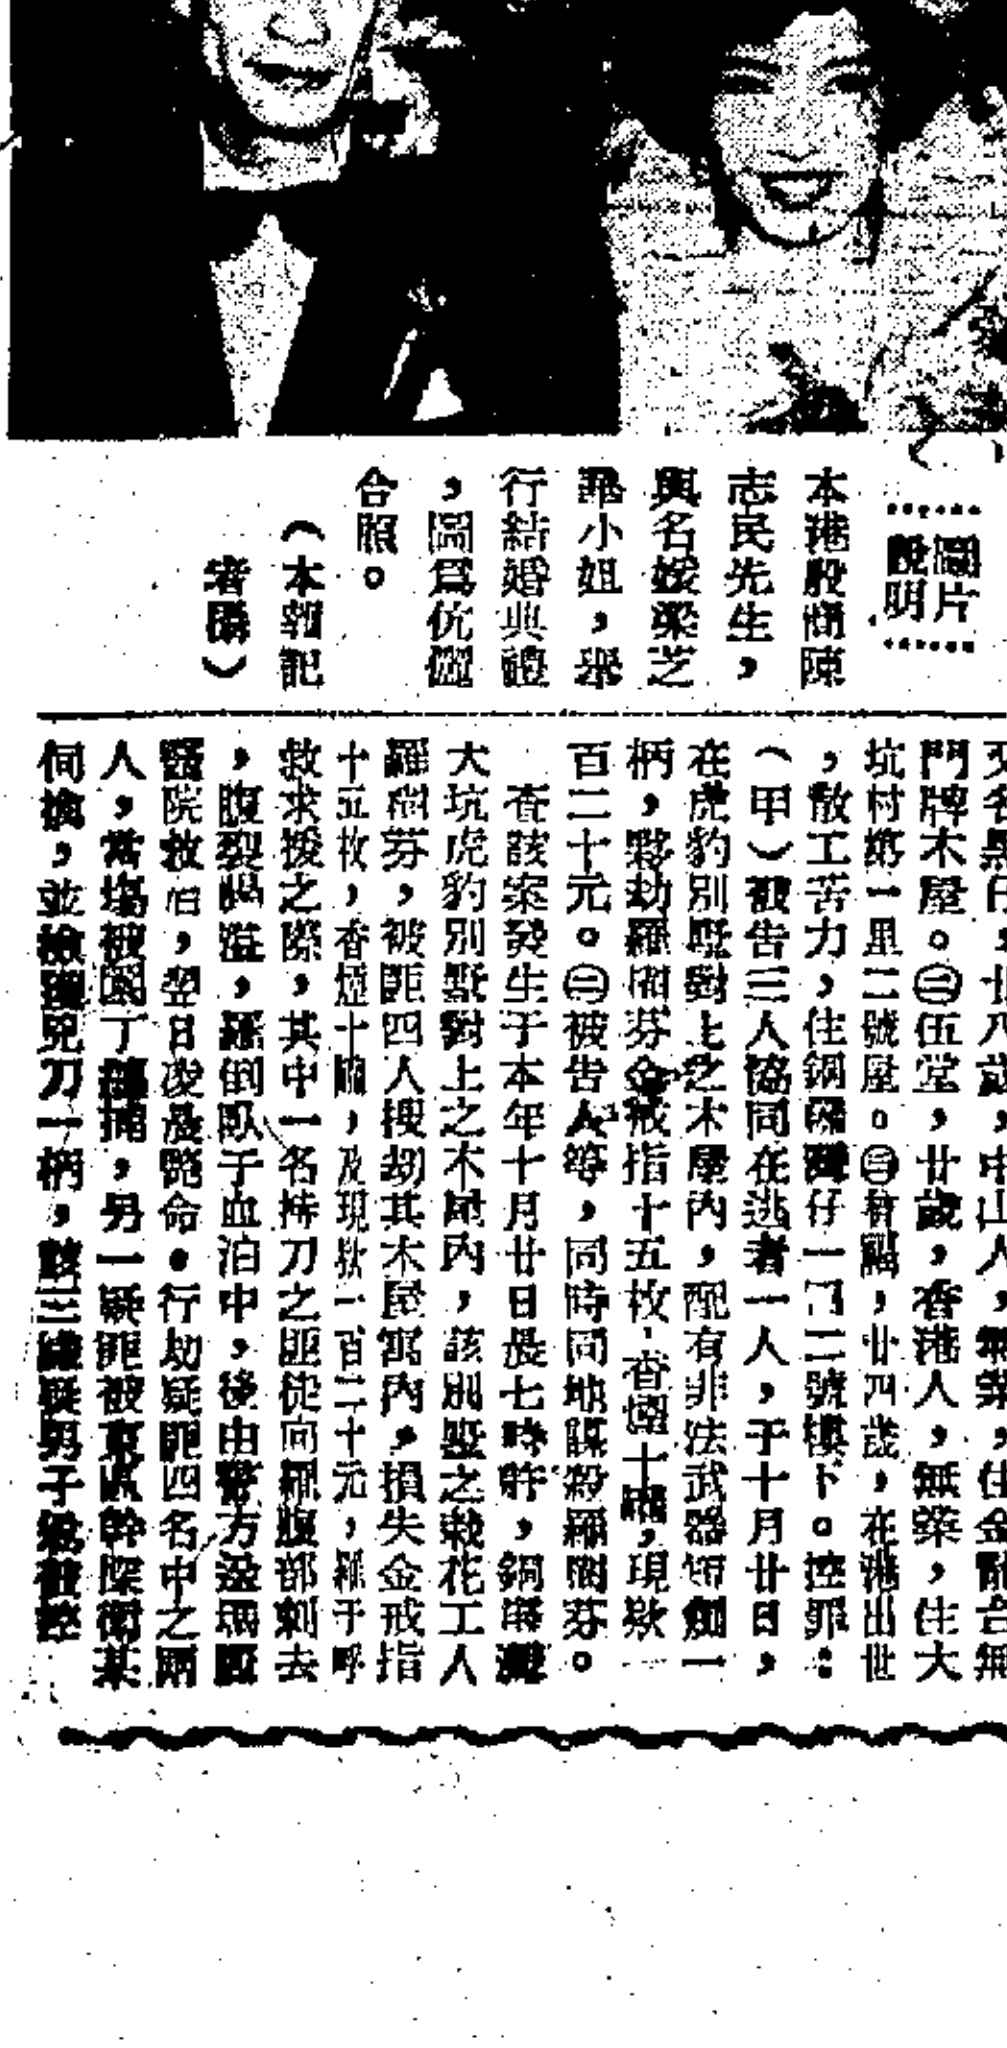 圖片
說明
本港殷商陳
志民先生，
與名媛梁芝
小姐，舉
行結婚典禮
，圖爲伉儷
合照。
（本報記
者攝）
十八歲，中山人，無業，住金龍台無
門牌木屋。㊂伍堂，廿歲，香港人，無業，住大
坑村第一里二號屋。㊂福，廿四歲，在港出世
，散工苦力，住銅鑼灣仔一二號樓下。控罪：
（甲）被告三人協同在逃者一人，于十月廿日，
在虎豹別墅對上之木屋內，配有非法武器短劍一
柄，夥劫羅潤芬金戒指十五枚，香煙十罐，現欵一
百二十元。㊁被告人等，同時同地謀殺羅潤芬。
查該案發生于本年十月廿日晨七時許，銅鑼灣
大坑虎豹別墅對上之木屋內，該別墅之栽花工人
羅潤芬，被匪四人搜劫其木屋寓內，損失金戒指
十五枚，香煙十罐，及現欵一百二十元，羅于呼
救求援之際，其中一名持刀之匪徒向羅腹部刺去
，腹裂腸溢，羅倒臥于血泊中，後由警方送瑪麗
醫院救治，翌日凌晨斃命。行劫疑匪四名中之兩
人，當塲被園丁捕，另一疑匪被東區幹探衛某
伺擒，並檢獲兇刀一柄，該三嫌疑男子被控